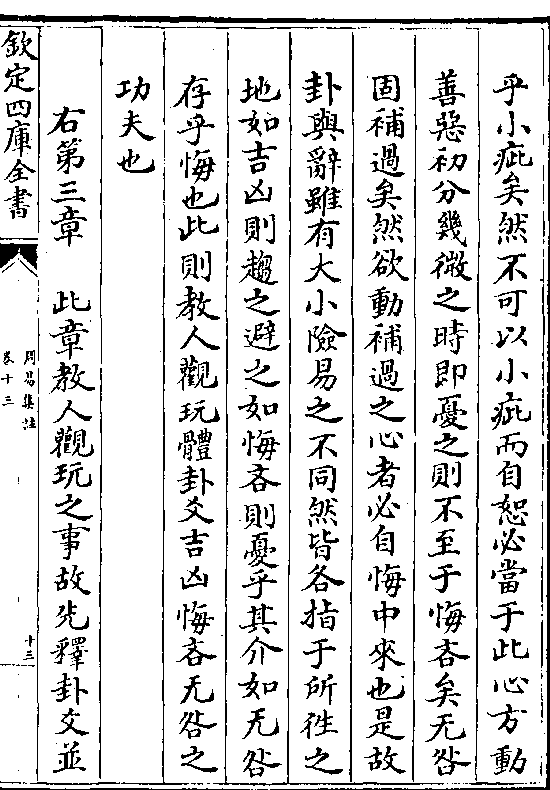 乎小疵矣然不可以小疵而自恕必當于此心方動
善惡初分幾微之時即憂之則不至于悔吝矣无咎
固補過矣然欲動補過之心者必自悔中來也是故
卦與辭雖有大小險易之不同然皆各指于所徃之
地如吉凶則趨之避之如悔吝則憂乎其介如无咎
存乎悔也此則教人觀玩體卦爻吉凶悔吝无咎之
功夫也
右第三章　此章教人觀玩之事故先釋卦爻並
欽定四庫全書
周易集註
卷十三
十三